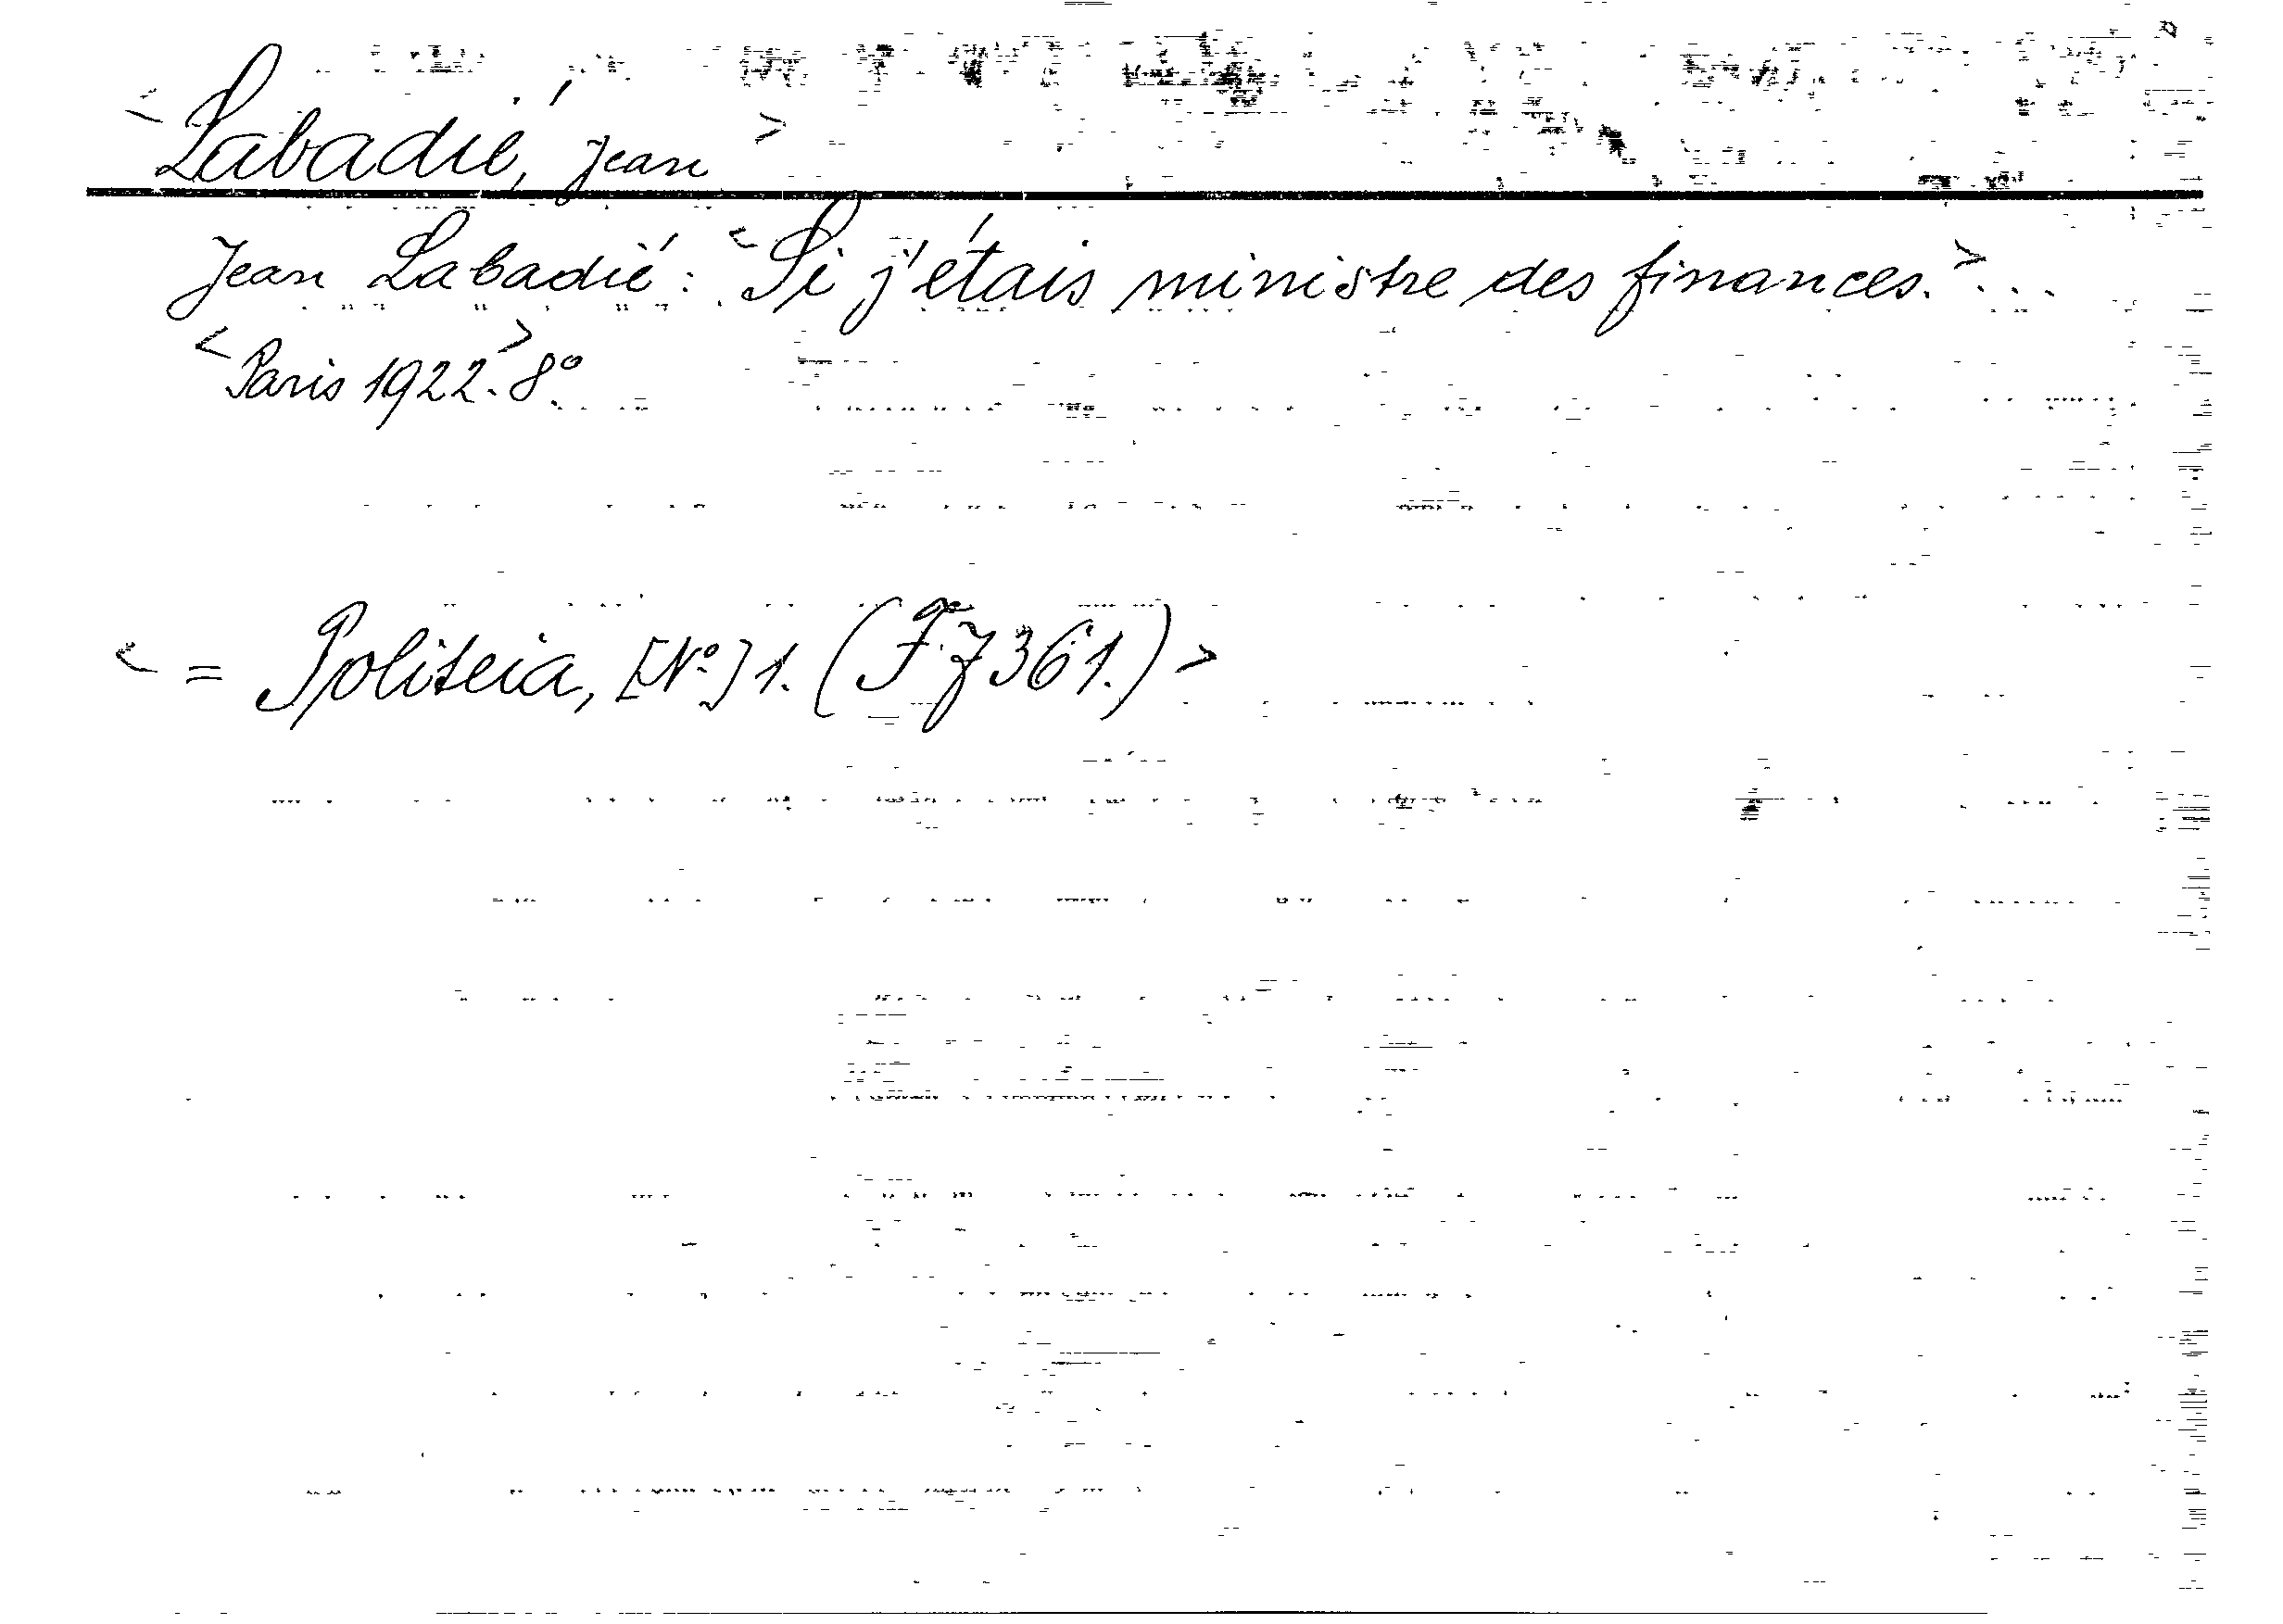 <Labadié, Jean>
Jean Labadié: <Si j'étais ministre des finances.>...
<Paris 1922.> 8º.
< = Politeia, [Nº] 1. (F. 7361.) >